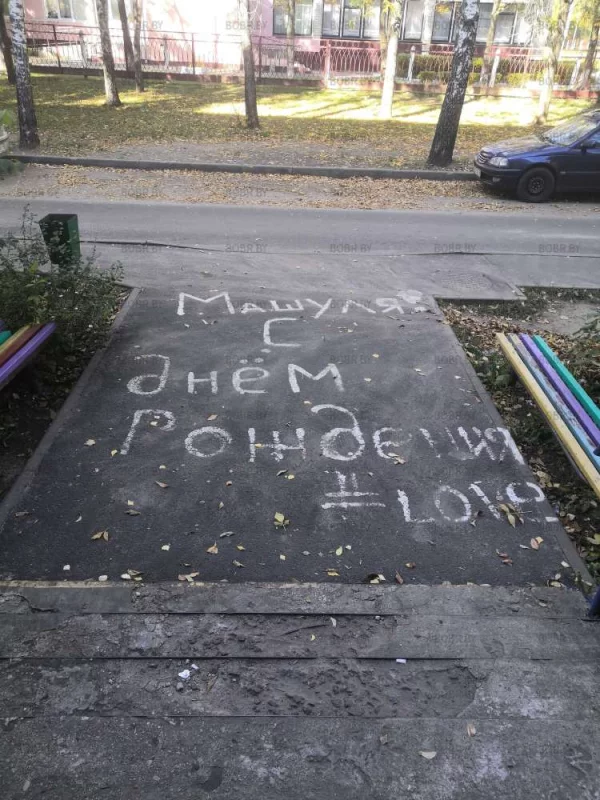 Машуля
С
днём
Рождения
#LOVE
BOBR.BY